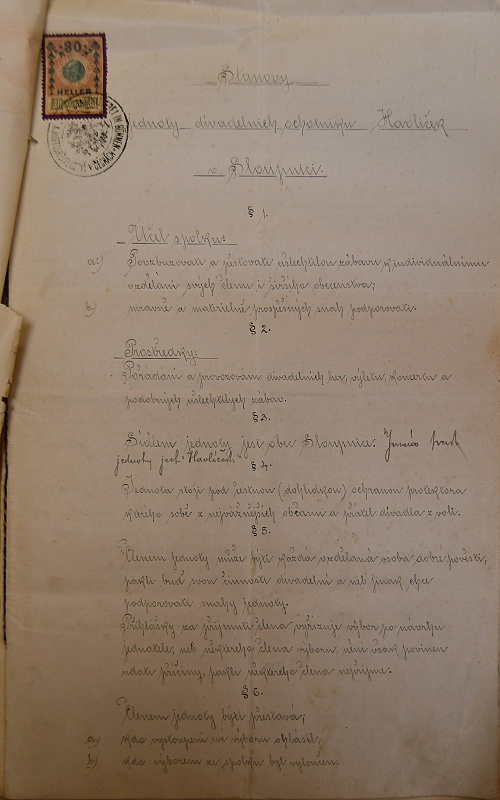 80
HELLER
Stanovy
jednoty divadelních ochotníků Havlíček
v Sloupnici.
§ 1.
Účel spolku:
a.) Povzbuzovati a pěstovati ušlechtilou zábavu k individuálnímu
vzdělání svých členů i širšího obecenstva;
b.) mravně a materielně prospěšných snah podporovati.
§ 2.
Prostředky:
Pořádání a provozování divadelních her, výletů, koncertů a
podobných ušlechtilých zábav.
§ 3.
Sídlem jednoty jest obec Sloupnice. Jméno
jednoty jest Havlíček
§ 4.
Jednota stojí pod čestnou (dohlídkou) ochranou protektora
kterého sobě z nejvážnějších občanů a přátel divadla z volí.
§ 5.
Členem jednoty může býti každá vzdělaná osoba dobré pověsti,
pakli buď svou činností divadelní a neb jinak chce
podporovati snahy jednoty.
Přihlášky za přijmutí člena vyřizuje výbor po návrhu
jednatele, neb některého člena výboru, není však povinen
udati příčiny, pakli některého člena nepřijme.
§ 6.
Členem jednoty býti přestává;
a) kdo vystoupení ve výboru ohlásil,
b) kdo výborem ze spolku byl vyloučen.